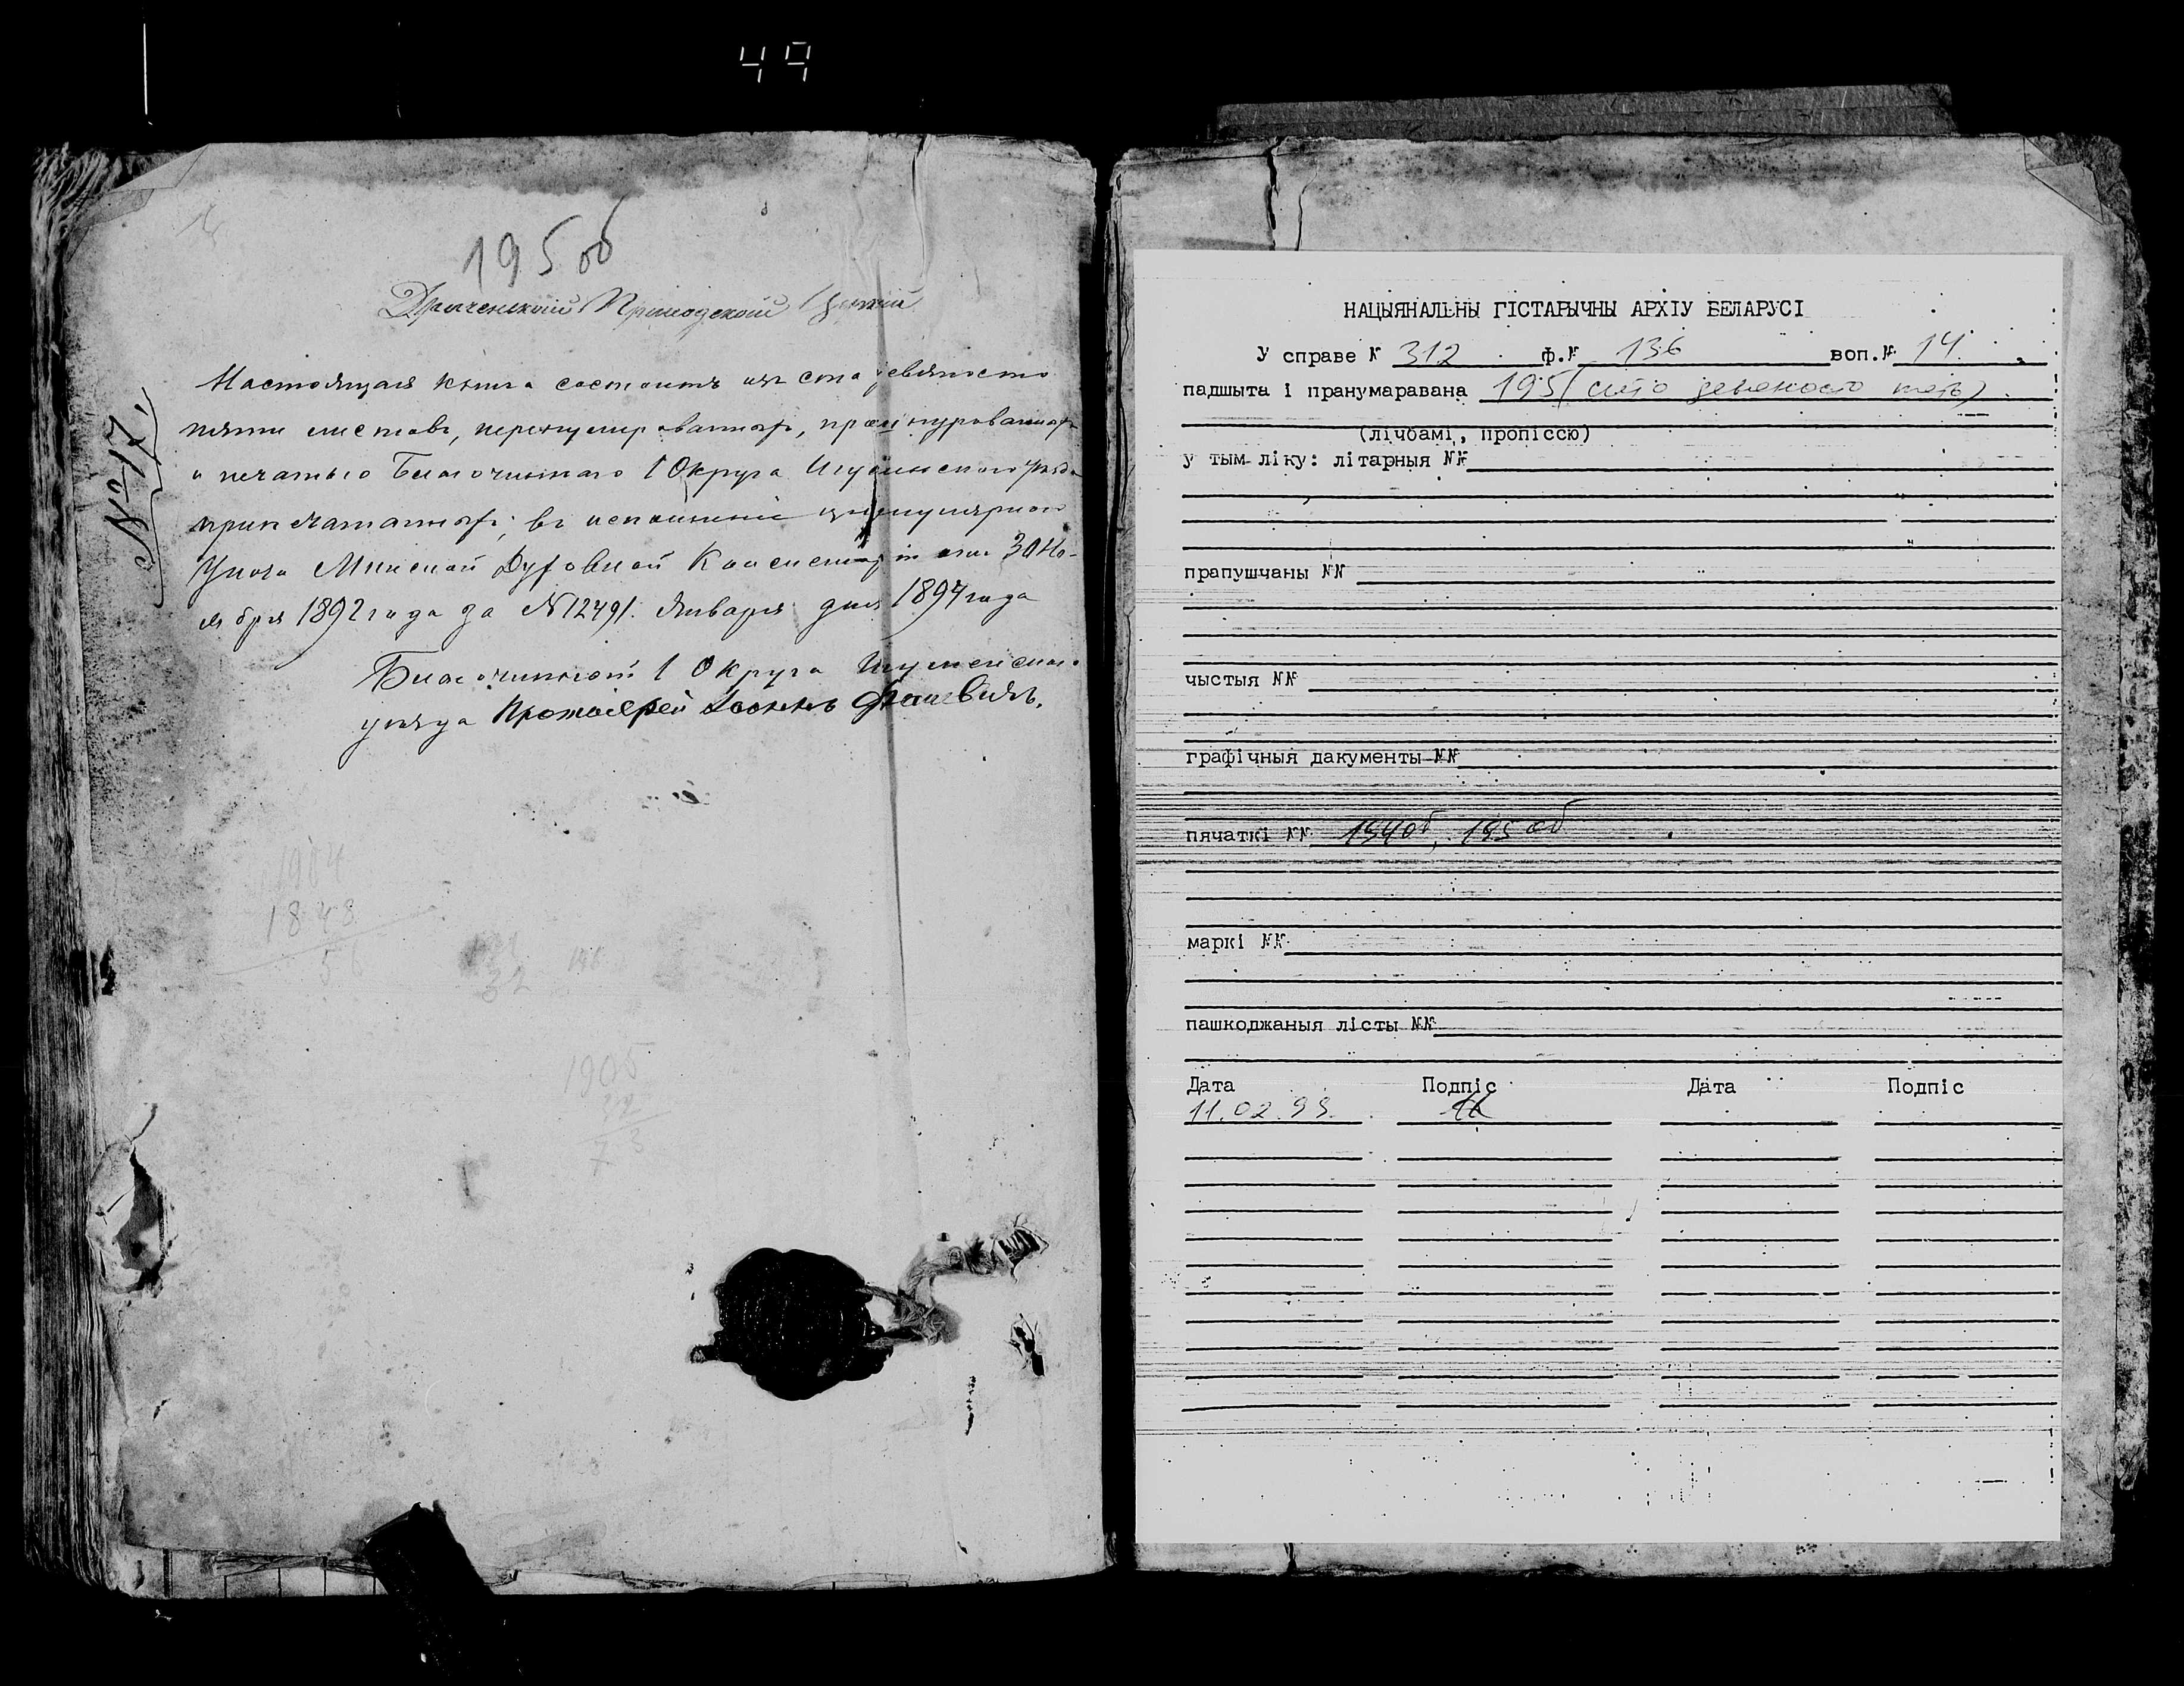 49
195 об
Приходской
Настоящая книга состоитъ изъ ста девяносто
пяти листовъ, перенумерованныхъ, прошнурованныхъ
и печатью Благочиннаго 1 Округа Игуменскаго уѣзда
припечатанныхъ; въ исполненіе циркулярнаго
Указа Минской Духовной Консисторіи отъ 30 Но-
ября 1892 года за N 12491. Января дня 1894 года
Благочинный 1 Округа Игуменскаго
уѣзда Протоіерей Іоаннъ
№ 17.
1904
1848
56
32
146
1905
32
73
НАЦЫЯНАЛЬНЫ ГІСТАРЫЧНЫ АРХІУ БЕЛАРУСІ
У справе № 312 ф.№ 136 воп.№ 14
падшыта і пранумаравана 195 (сто девяносто пять)
(лічбамі, пропіссю)
у тым ліку: літарныя №№
прапушчаны №№
чыстыя №№
графічныя дакументы №№
пячаткі №№ 194об, 195об
маркі №№
пашкоджаныя лісты №№
Дата Подпіс Дата Подпіс
11.02.99